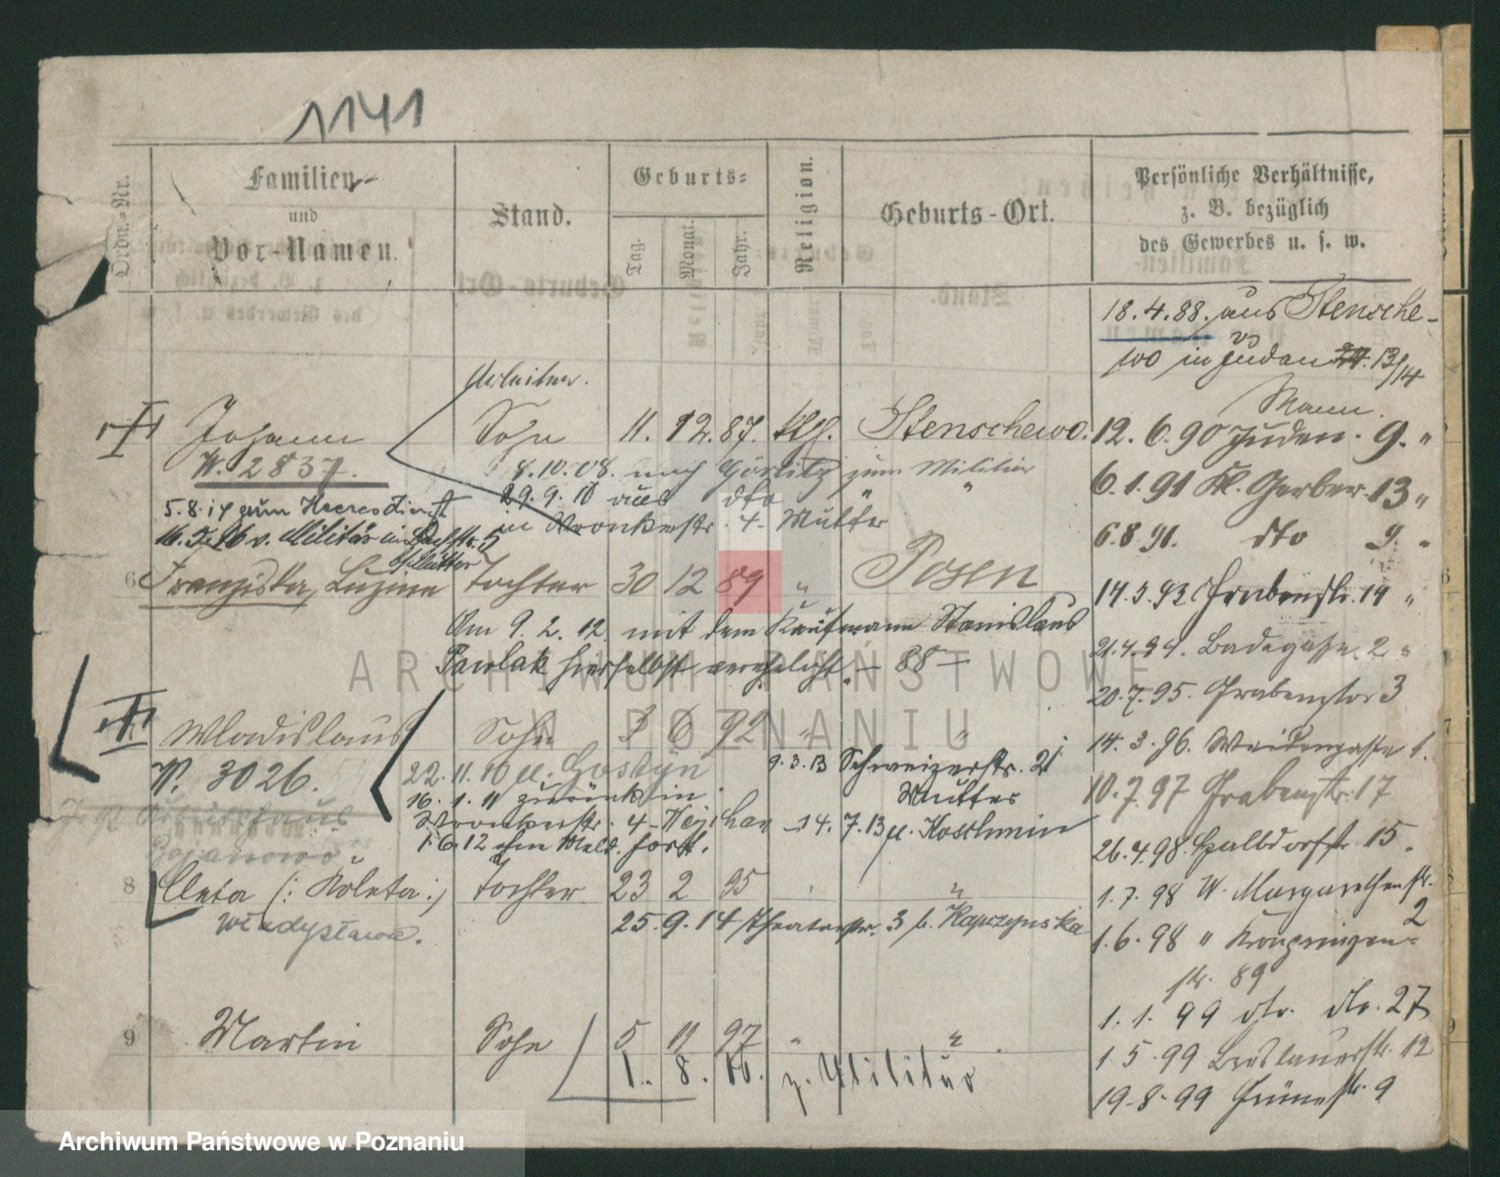 1141
Ordn.-Nr.
Familien-
und
Vor-Namen.
Stand.
Geburts-
Tag.
Monat.
Jahr.
Religion.
Geburts-Ort.
Persönliche Verhältnisse,
z. B. bezüglich
des Gewerbes u. s. w.
18.4.88. aus Stensche-
wo in Juden 13/14
Arbeiter.
Mann.
Johann Sohn 11. 12. 87. kth. Stenschewo.
N. 2837.
8.10.08. nach Görlitz zum Militär
29.9.10 aus dto "
in Wronkerstr. 4 - Mutter
5.8.14 zum Heeresdienst
v. Militär in
b/Mutter
6 Franziska, Luzine Tochter 30 12 89 " Posen
Am 9. 2. 12. mit dem Kaufmann Stanislaus
Pawlak hierselbst verehelicht. - 88 -
Wladislaus Sohn 3 6 92 " "
N. 3026.
22. 11. 10 n. Gostyn
16. 1. 11 zurück in
Wronkerstr. 4 -
1.6.12 ohn Meld. fort.
9.3.13 Schweizerstr. 21
Mutter
14. 7. 13 n. Koschmin
Bojanowo
8 Cleta (: Koleta :) Tochter 23 2 95 " "
Władysława.
25. 9. 14 Theaterstr. 3 b. Kapczynska
9 Martin Sohn 5 11 97 " "
1. 8. 16. z. Militär
12. 6. 90 Juden. 9. "
6. 1. 91 Kl. Gerber. 13 "
6.8.91. dto 9 "
14.3.93 Grabenstr. 14 "
21.4.94. Badegasse 2 "
20.7.95. Grabenstr 3
14. 3. 96. Weidengasse 1.
10.7.97 Grabenstr. 17
26.4.98. Halbdorfstr 15.
1. 7. 98 W. Margarethenstr.
2
1.6.98 " Kronprinzen-
str. 89
1. 1. 99 dto. dto. 27
1. 5. 99 Breslauerstr. 12
19.8.99 Grünestr. 9
ARCHIWUM PAŃSTWOWE
W POZNANIU
Archiwum Państwowe w Poznaniu